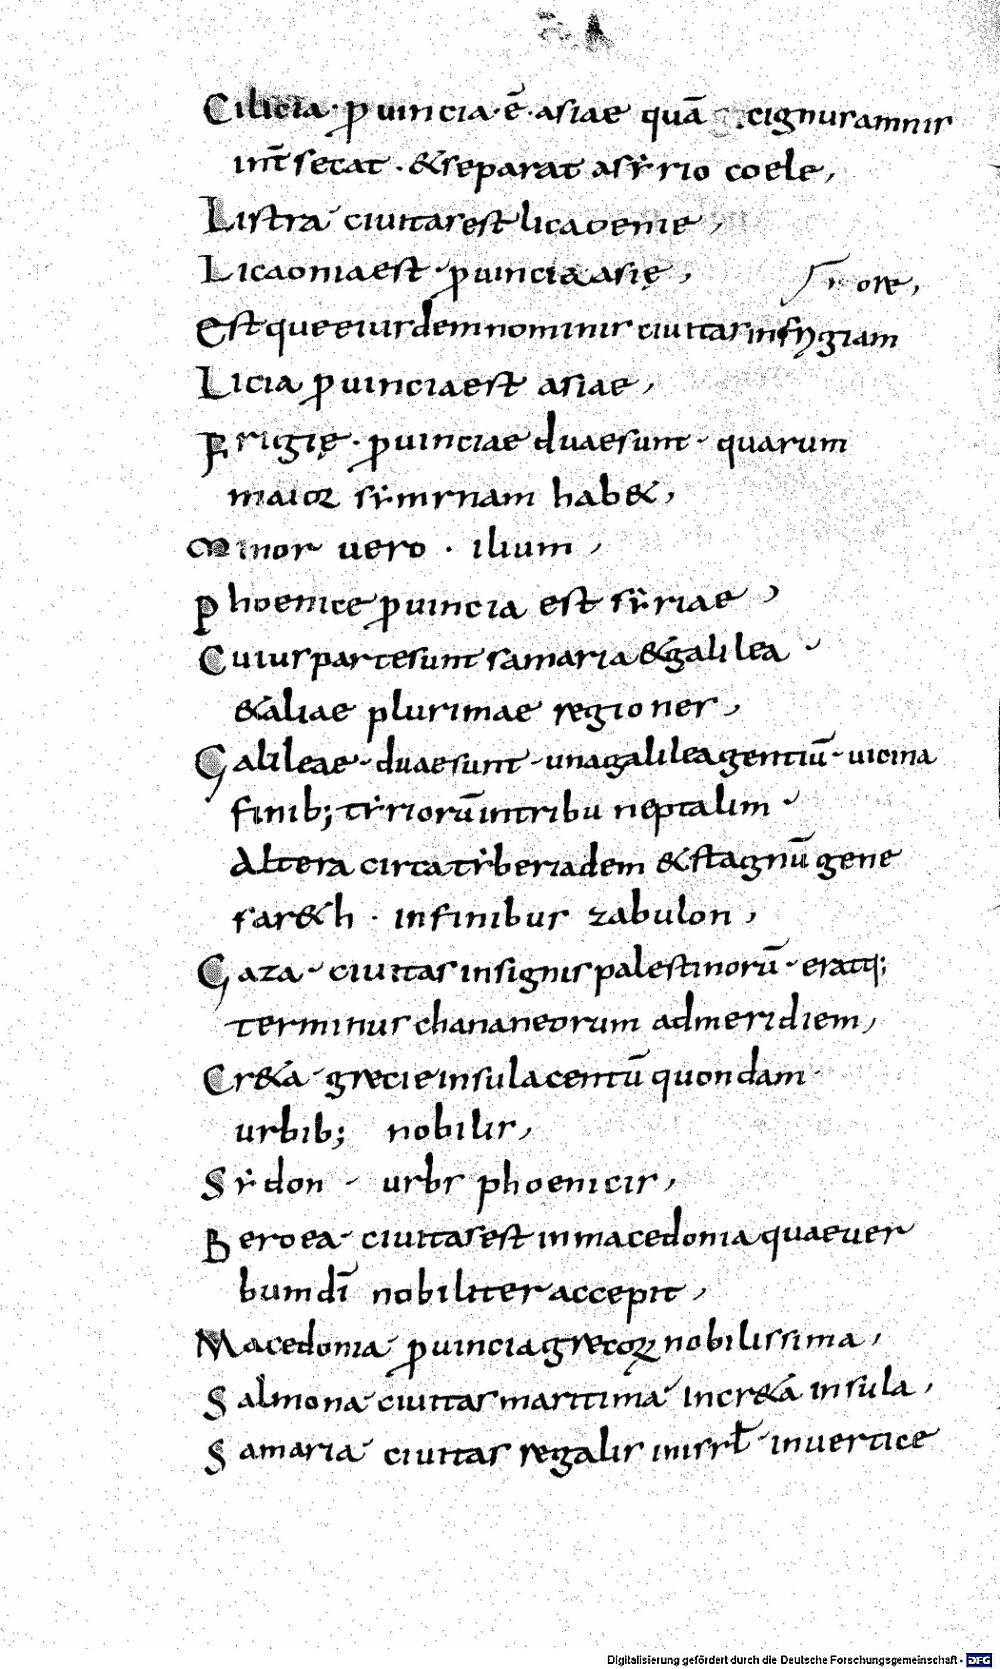 Cilicia · ꝓuincia · ē · asiae quā cignus amnis
int̄ secat · & separat a sẏrio coele,
Listra ciuitas est licaoenie,
Licaonia est · ꝓuincia asię,
Est que eiusdem nominis ciuitas in frygiam
Licia ꝓuincia est asiae,
Frigię · ꝓuinciae duae sunt · quarum
maior sẏmrnam hab&,
Minor uero · ilium,
Phoenice ꝓuincia est sẏriae,
Cuius parte sunt samaria & galilea
& aliae plurimae regiones,
Galileae · duae sunt · una galilea gentiū · uicina
finib; tẏriorū in tribu neptalim
Altera circa tẏberiadem & stagnū gene
sar&h · in finibus zabulon,
Gaza · ciuitas insignis palestinorū · eratq;
terminus chananeorum ad meridiem,
Cr&a · grecie insula centū quondam
urbib; nobilis,
Sẏdon · urbs phoenicis,
Beroea · ciuitas est in macedonia quae uer
bum dī nobiliter accepit,
Macedonia ꝓuincia grecoꝝ nobilissima,
Salmona ciuitas maritima in cr&a insula,
Samaria ciuitas regalis in isrł · in uertice
Digitalisierung gefördert durch die Deutsche Forschungsgemeinschaft - DFG